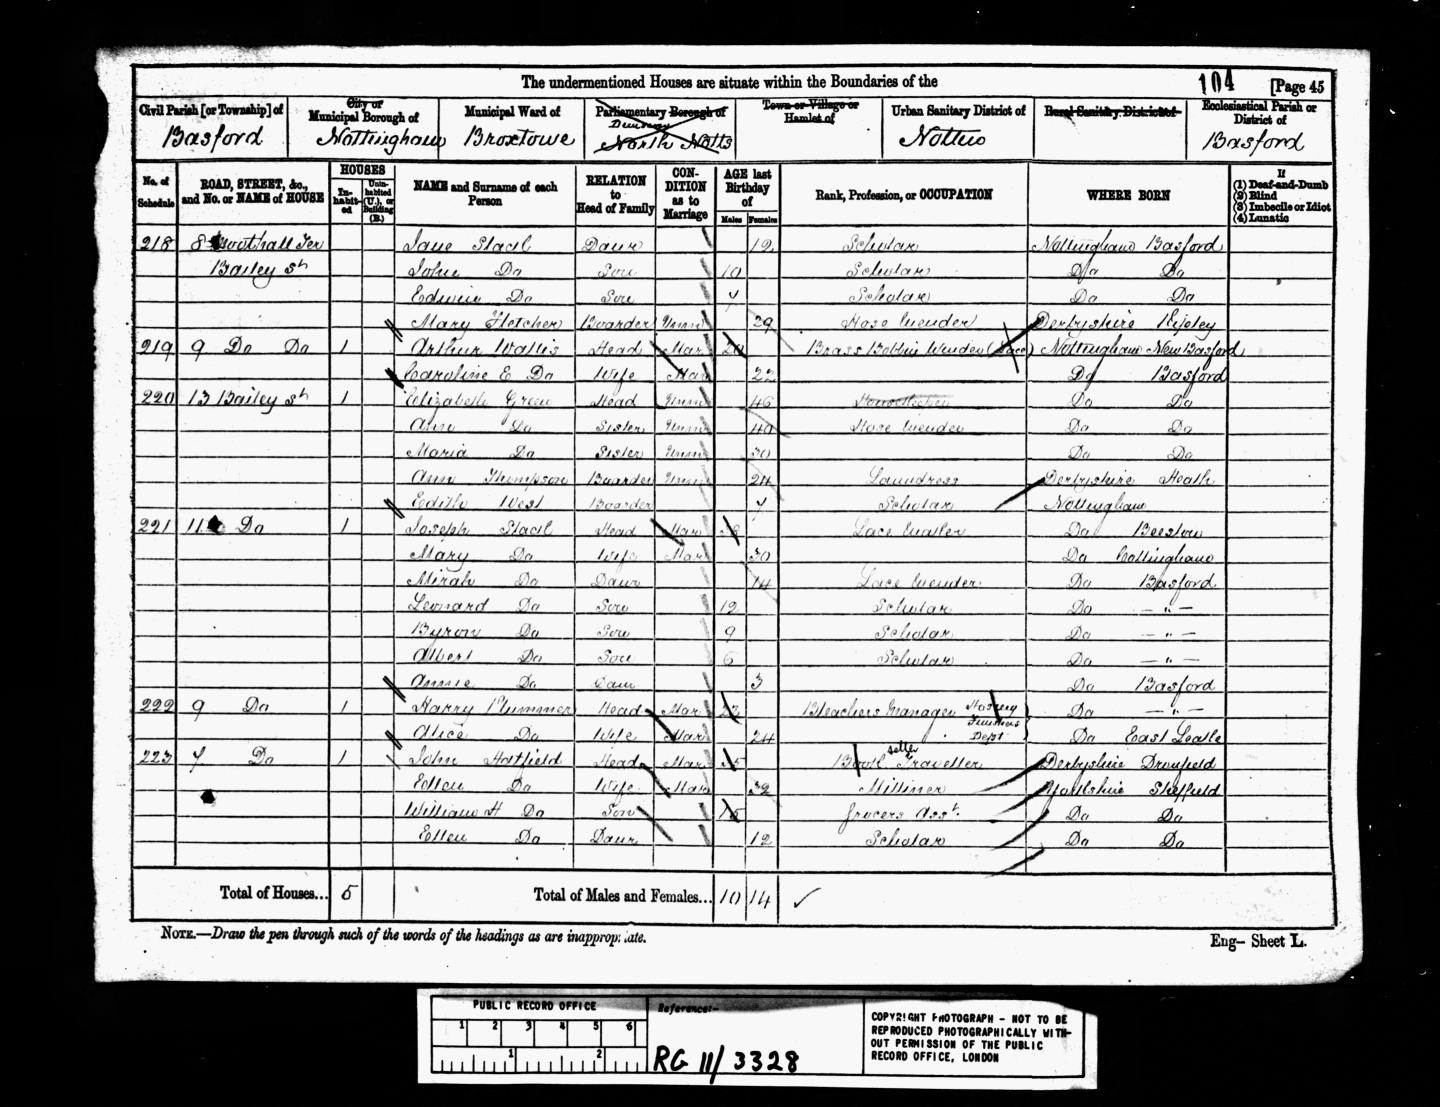 The undermentioned Houses are situate within the Boundaries of the 104 [Page 45
Civil Parish [or Township] of City or Municipal Borough of Municipal Ward of Parliamentary Borough of Town or Village or Hamlet of Urban Sanitary District of Rural Sanitary District of Ecclesiastical Parish or District of
Basford Nottingham Broxtowe Division North Notts Nottm Basford
No. of Schedule ROAD, STREET, &c., and No. or NAME of HOUSE HOUSES In-habit-ed Unin-habited (U.), or Building (B.) NAME and Surname of each Person RELATION to Head of Family CON-DITION as to Marriage AGE last Birthday of Males Females Rank, Profession, or OCCUPATION WHERE BORN If (1) Deaf-and-Dumb (2) Blind (3) Imbecile or Idiot (4) Lunatic
218 8 Ter Jane Daur 12 Scholar Nottingham Basford
Bailey St John Do Son 10 Scholar Do Do
Edwin Do Son 7 Scholar Do Do
Mary Fletcher Boarder Unm 29 Hose Derbyshire
219 9 Do Do 1 Arthur Wallis Head Mar Brass Bobbin Winder (Lace) Nottingham New Basford
Caroline E Do Wife Mar 22 Do Basford
220 13 Bailey St 1 Elizabeth Green Head Unm 46 Do Do
Ann Do Sister Unm 40 Hose Do Do
Maria Do Sister Unm 30 Do Do
Ann Thompson Boarder Unm 24 Laundress Derbyshire Heath
Edith West Boarder 7 Scholar Nottingham
221 11 Do 1 Joseph Head Mar 38 Lace Do Beeston
Mary Do Wife Mar 30 Do Cottingham
Mirah Do Daur 14 Lace Do Basford
Leonard Do Son 12 Scholar Do — " —
Byron Do Son 9 Scholar Do — " —
Albert Do Son 6 Scholar Do — " —
Annie Do Daur 3 Do Basford
222 9 Do 1 Harry Plummer Head Mar 23 Bleachers Manager Hosiery Finishers Dept Do — " —
Alice Do Wife Mar 24 Do East Leake
223 7 Do 1 John Hatfield Head Mar 35 seller Traveller Derbyshire Dronfield
Ellen Do Wife Mar 32 Milliner Yorkshire Sheffield
William H Do Son Grocers Asst. Do Do
Ellen Do Daur 12 Scholar Do Do
Total of Houses... 5 Total of Males and Females... 10 14
NOTE.—Draw the pen through such of the words of the headings as are inappropriate.
Eng— Sheet L.
PUBLIC RECORD OFFICE
1 2 3 4 5 6
1 2
Reference:-
RG 11/3328
COPYRIGHT PHOTOGRAPH - NOT TO BE
REPRODUCED PHOTOGRAPHICALLY WITH-
OUT PERMISSION OF THE PUBLIC
RECORD OFFICE, LONDON